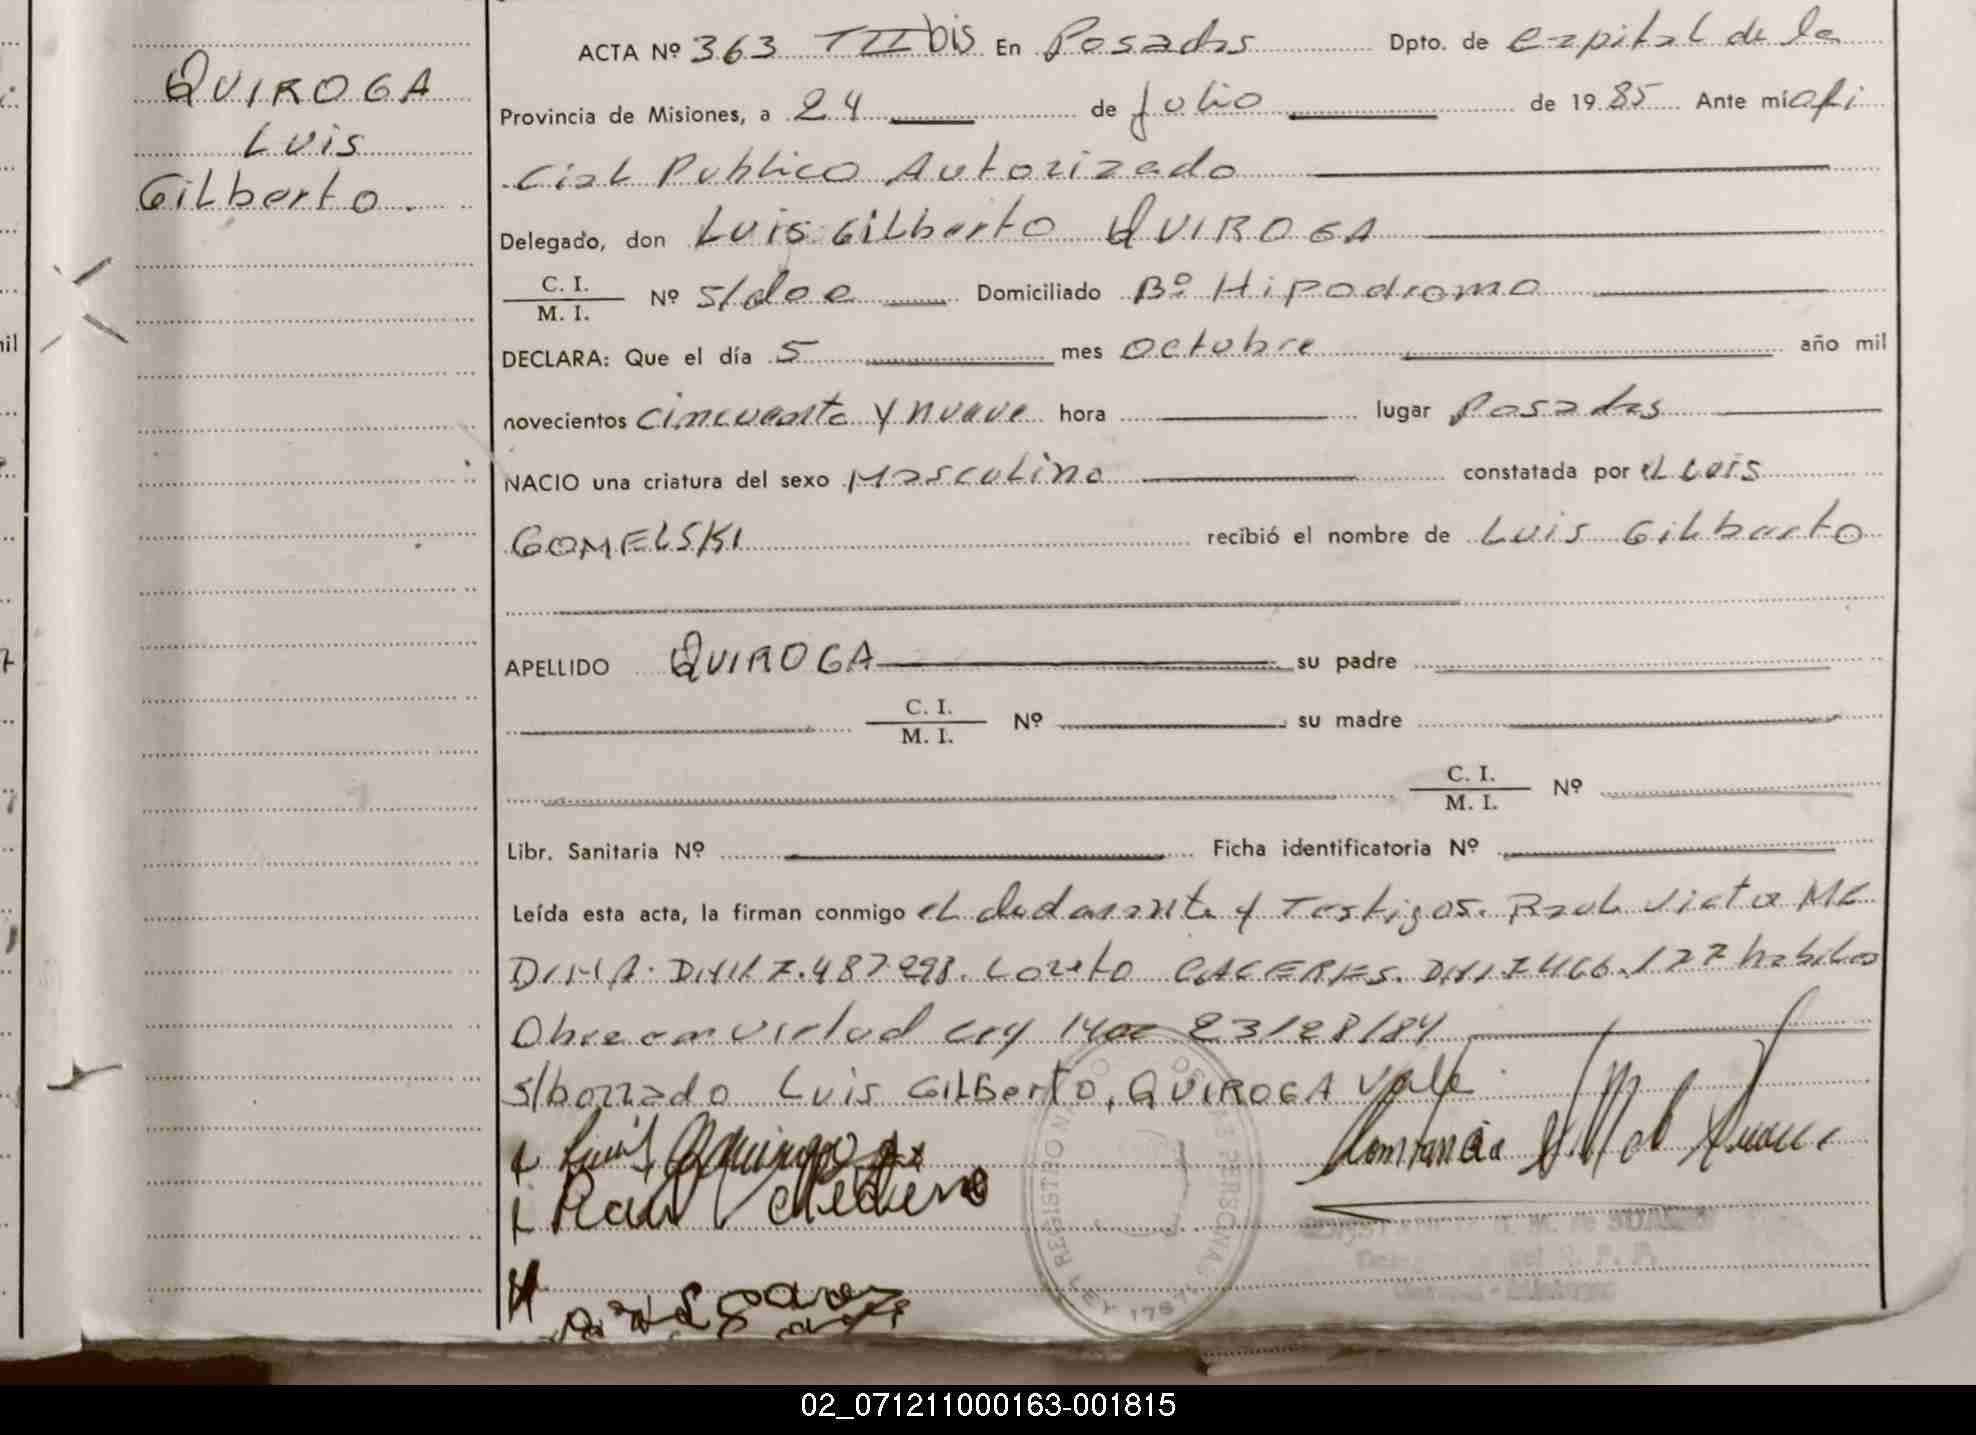 QUIROGA
Luis
Gilberto.
ACTA Nº 363 TIII bis En Posadas Dpto. de capital de la
Provincia de Misiones, a 24 de Julio de 1985 Ante mí ofi
cial Publico Autorizado
Delegado, don Luis Gilberto QUIROGA
C. I.
M. I. Nº s/doc Domiciliado Bº Hipodromo
DECLARA: Que el día 5 mes octubre año mil
novecientos cincuenta y nueve hora lugar Posadas
NACIO una criatura del sexo Masculino constatada por el Luis
GOMELSKI recibió el nombre de Luis Gilberto
APELLIDO QUIROGA su padre
C. I.
M. I. Nº su madre
C. I.
M. I. Nº
Libr. Sanitaria Nº Ficha identificatoria Nº
Leída esta acta, la firman conmigo el declarante y Testigos. Raul Victor ME
DINA. DNI 7.487.298. Loreto CACERES. DNI 7466.127 habiles
Obre en virtud Ley 1402 23/28/84
s/borrado Luis GILBerto, QUIROGA vale
Luis Quiroga
Raul Medina
REGISTRO DE LAS PERSONAS
LEY
02_071211000163-001815